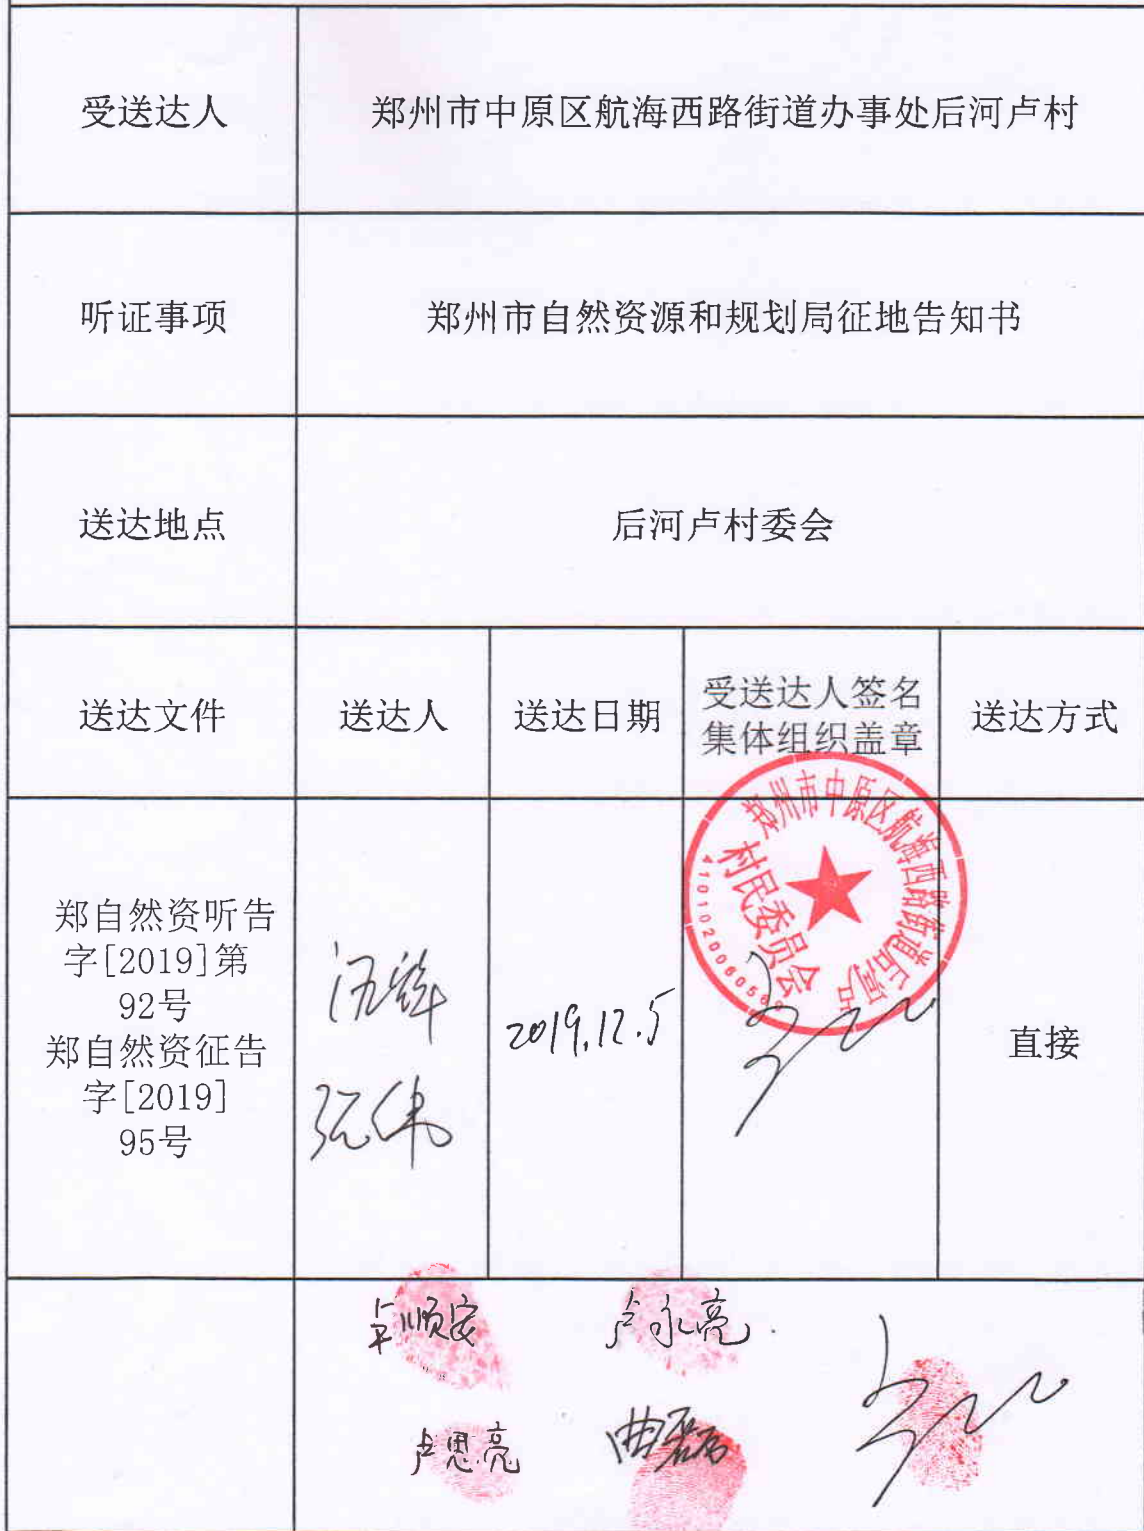 受送达人 郑州市中原区航海西路街道办事处后河卢村
听证事项 郑州市自然资源和规划局征地告知书
送达地点 后河卢村委会
送达文件 送达人 送达日期 受送达人签名
集体组织盖章 送达方式
郑自然资听告
字[2019]第
92号
郑自然资征告
字[2019]
95号
2019.12.5
郑州市中原区航海西路街道后河卢
村民委员会
直接
卢永亮
卢思亮
曲磊